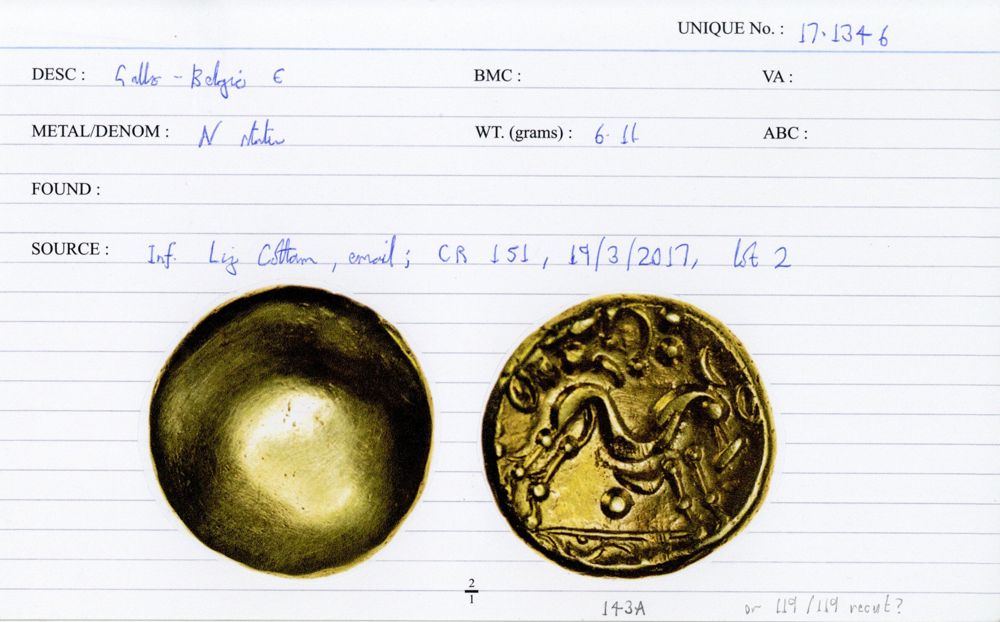 UNIQUE No. : 17.1346
DESC : Gallo-Belgic E BMC : VA :
METAL/DENOM : N stater WT. (grams) : 6.11 ABC :
FOUND :
SOURCE : Inf. Liz Cottam, email; CR 151, 19/3/2017, lot 2
2
1
143A or 119/119 recut?